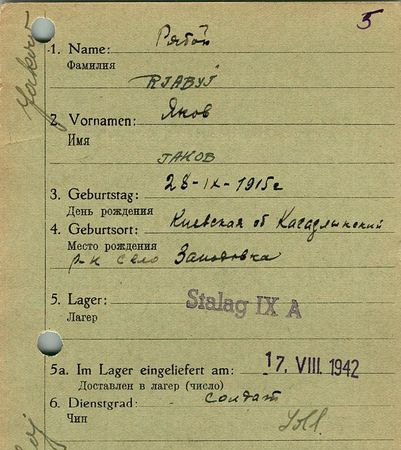 5
1. Name: Рябой
Фамилия
RJABYJ
2. Vornamen: Яков
Имя
JAKOB
3. Geburtstag: 28-IX-1915 г
День рождения
4. Geburtsort: Киевская об Кагарлыкский
Место рождения
р-н село
5. Lager: Stalag IX A
Лагер
5a. Im Lager eingeliefert am: 17. VIII. 1942
Доставлен в лагер (число)
6. Dienstgrad: солдат
Чин
Soll.